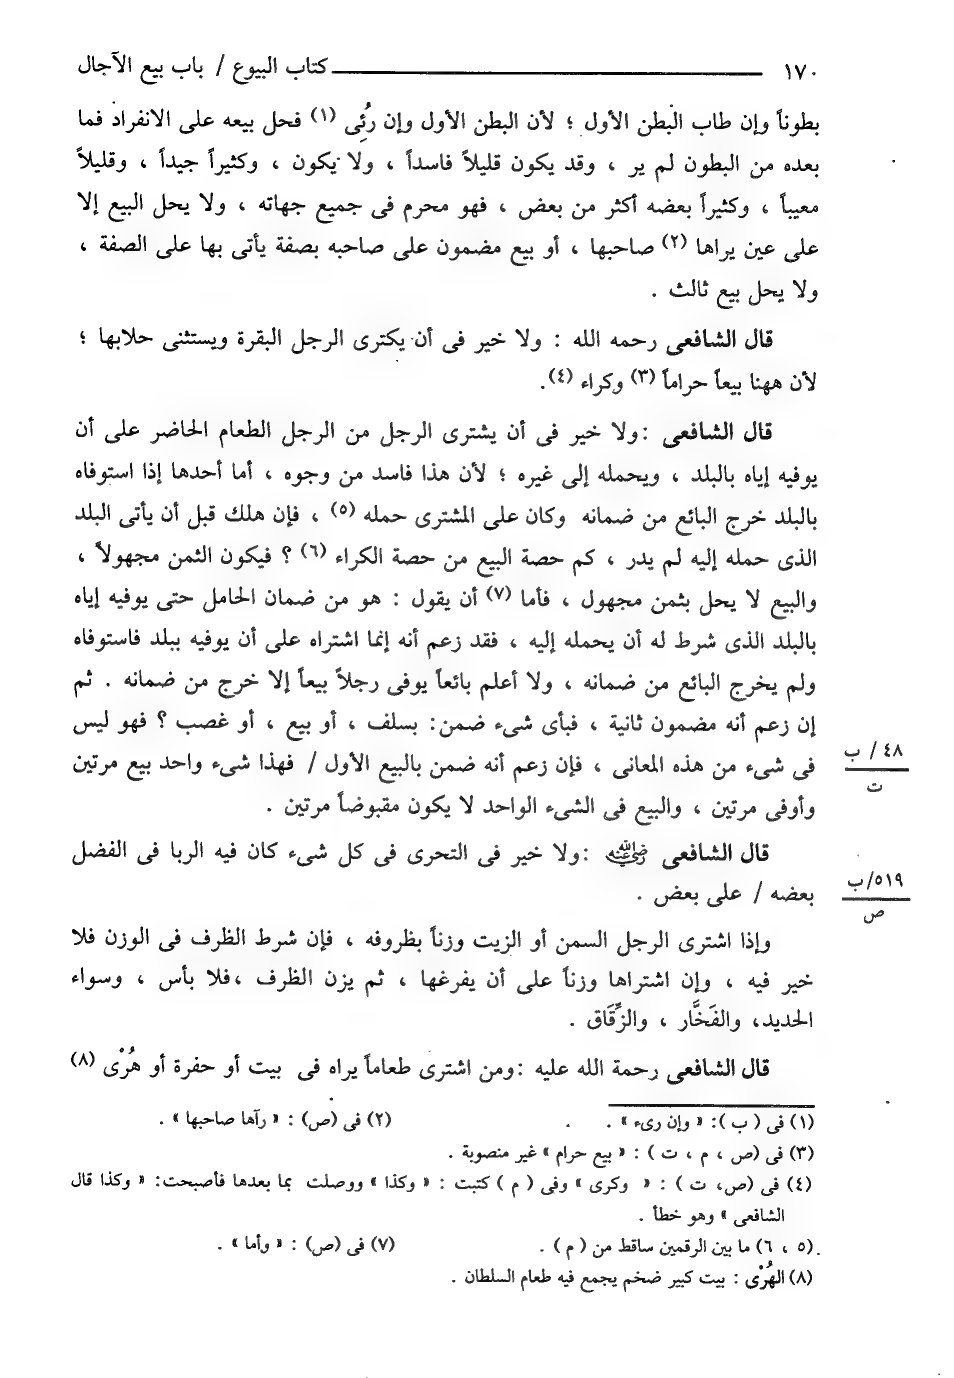 ١٧٠ ـــــــــــــــــــ كتاب البيوع / باب بيع الآجال
بطوناً وإن طاب البطن الأول ؛ لأن البطن الأول وإن رُئِى (١) فحل بيعه على الانفراد فما
بعده من البطون لم ير ، وقد يكون قليلاً فاسداً ، ولا يكون ، وكثيراً جيداً ، وقليلاً
معيباً ، وكثيراً بعضه أكثر من بعض ، فهو محرم فى جميع جهاته ، ولا يحل البيع إلا
على عين يراها (٢) صاحبها ، أو بيع مضمون على صاحبه بصفة يأتى بها على الصفة ،
ولا يحل بيع ثالث .
قال الشافعى رحمه الله : ولا خير فى أن يكترى الرجل البقرة ويستثنى حلابها ؛
لأن ههنا بيعاً حراماً (٣) وكراء (٤).
قال الشافعى :ولا خير فى أن يشترى الرجل من الرجل الطعام الحاضر على أن
يوفيه إياه بالبلد ، ويحمله إلى غيره ؛ لأن هذا فاسد من وجوه ، أما أحدها إذا استوفاه
بالبلد خرج البائع من ضمانه وكان على المشترى حمله (٥) ، فإن هلك قبل أن يأتى البلد
الذى حمله إليه لم يدر ، كم حصة البيع من حصة الكراء (٦) ؟ فيكون الثمن مجهولاً ،
والبيع لا يحل بثمن مجهول ، فأما (٧) أن يقول : هو من ضمان الحامل حتى يوفيه إياه
بالبلد الذى شرط له أن يحمله إليه ، فقد زعم أنه إنما اشتراه على أن يوفيه ببلد فاستوفاه
ولم يخرج البائع من ضمانه ، ولا أعلم بائعاً يوفى رجلاً بيعاً إلا خرج من ضمانه . ثم
إن زعم أنه مضمون ثانية ، فبأى شىء ضمن: بسلف ، أو بيع ، أو غصب ؟ فهو ليس
فى شىء من هذه المعانى ، فإن زعم أنه ضمن بالبيع الأول / فهذا شىء واحد بيع مرتين
٤٨ / ب
ت
وأوفى مرتين ، والبيع فى الشىء الواحد لا يكون مقبوضاً مرتين .
قال الشافعى رضي الله عنه :ولا خير فى التحرى فى كل شىء كان فيه الربا فى الفضل
٥١٩/ب
ص
بعضه / على بعض .
وإذا اشترى الرجل السمن أو الزيت وزناً بظروفه ، فإن شرط الظرف فى الوزن فلا
خير فيه ، وإن اشتراها وزناً على أن يفرغها ، ثم يزن الظرف ،فلا بأس ، وسواء
الحديد، والفَخَّار ، والزِّقَاق .
قال الشافعى رحمة الله عليه :ومن اشترى طعاماً يراه فى بيت أو حفرة أو هُرْى (٨)
(١) فى ( ب ): « وإن رىء » . (٢) فى (ص) : « رآها صاحبها » .
(٣) فى (ص ، م ، ت ) : « بيع حرام » غير منصوبة .
(٤) فى (ص، ت ) : « وكرى » وفى ( م ) كتبت : « وكذا » ووصلت بما بعدها فأصبحت: « وكذا قال
الشافعى » وهو خطأ .
(٥ ، ٦) ما بين الرقمين ساقط من ( م ) . (٧) فى (ص) : « وأما » .
(٨) الهُرْى : بيت كبير ضخم يجمع فيه طعام السلطان .